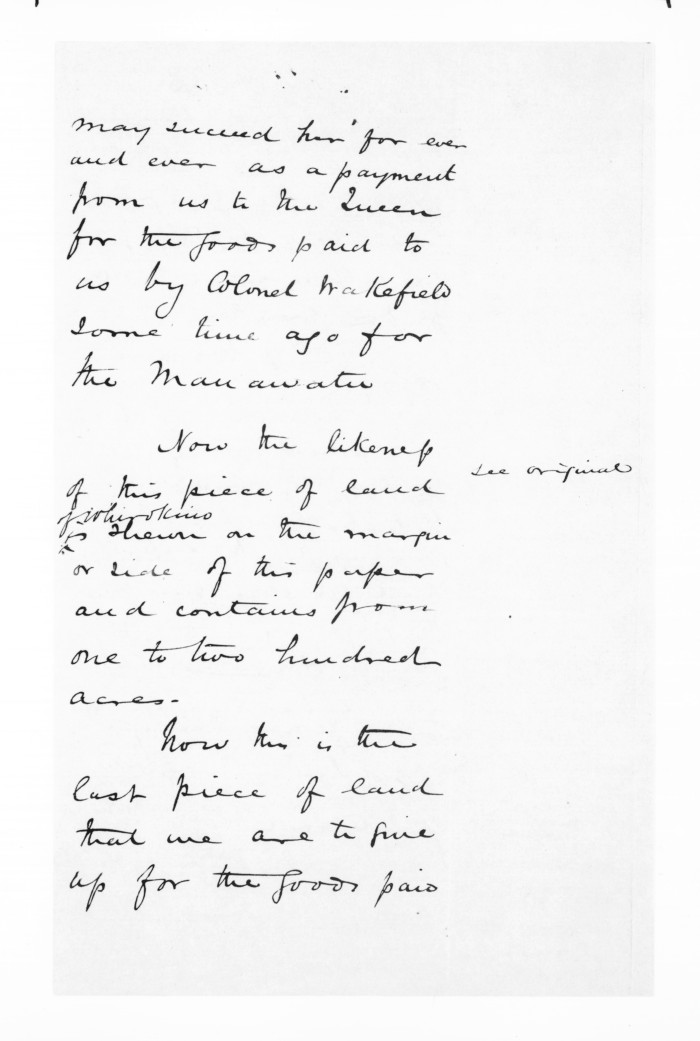 may succeed her for ever
and ever as a payment
from us to the Queen
for the Goods paid to
us by Colonel Wakefield
some time ago for
the Manawatu
Now the likeness
see original
of this piece of land
of Whirokino
is shewn on the margin
or side of this paper
and contains from
one to two hundred
acres.
Now this is the
last piece of land
that we are to give
up for the Goods paid